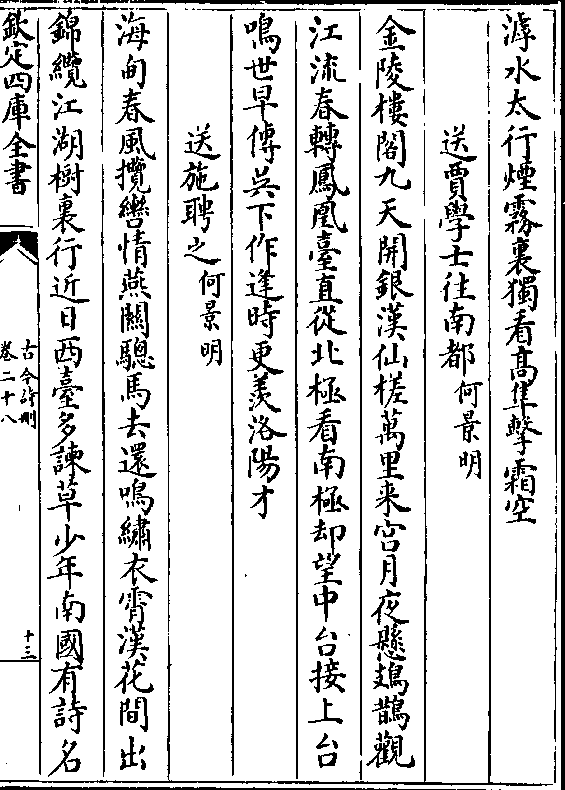 滹水太行煙霧裏獨看髙隼擊霜空
送賈學士往南都何景明
金陵樓閣九天開銀漢仙槎萬里来宫月夜懸鳷鵲觀
江流春轉鳳凰臺直從北極看南極却望中台接上台
鳴世早傳吳下作逢時更羨洛陽才
送施聘之何景明
海甸春風攬轡情燕關驄馬去還鳴繡衣霄漢花間出
錦纜江湖樹裏行近日西臺多諫草少年南國有詩名
欽定四庫全書
古今詩刪
卷二十八
十三